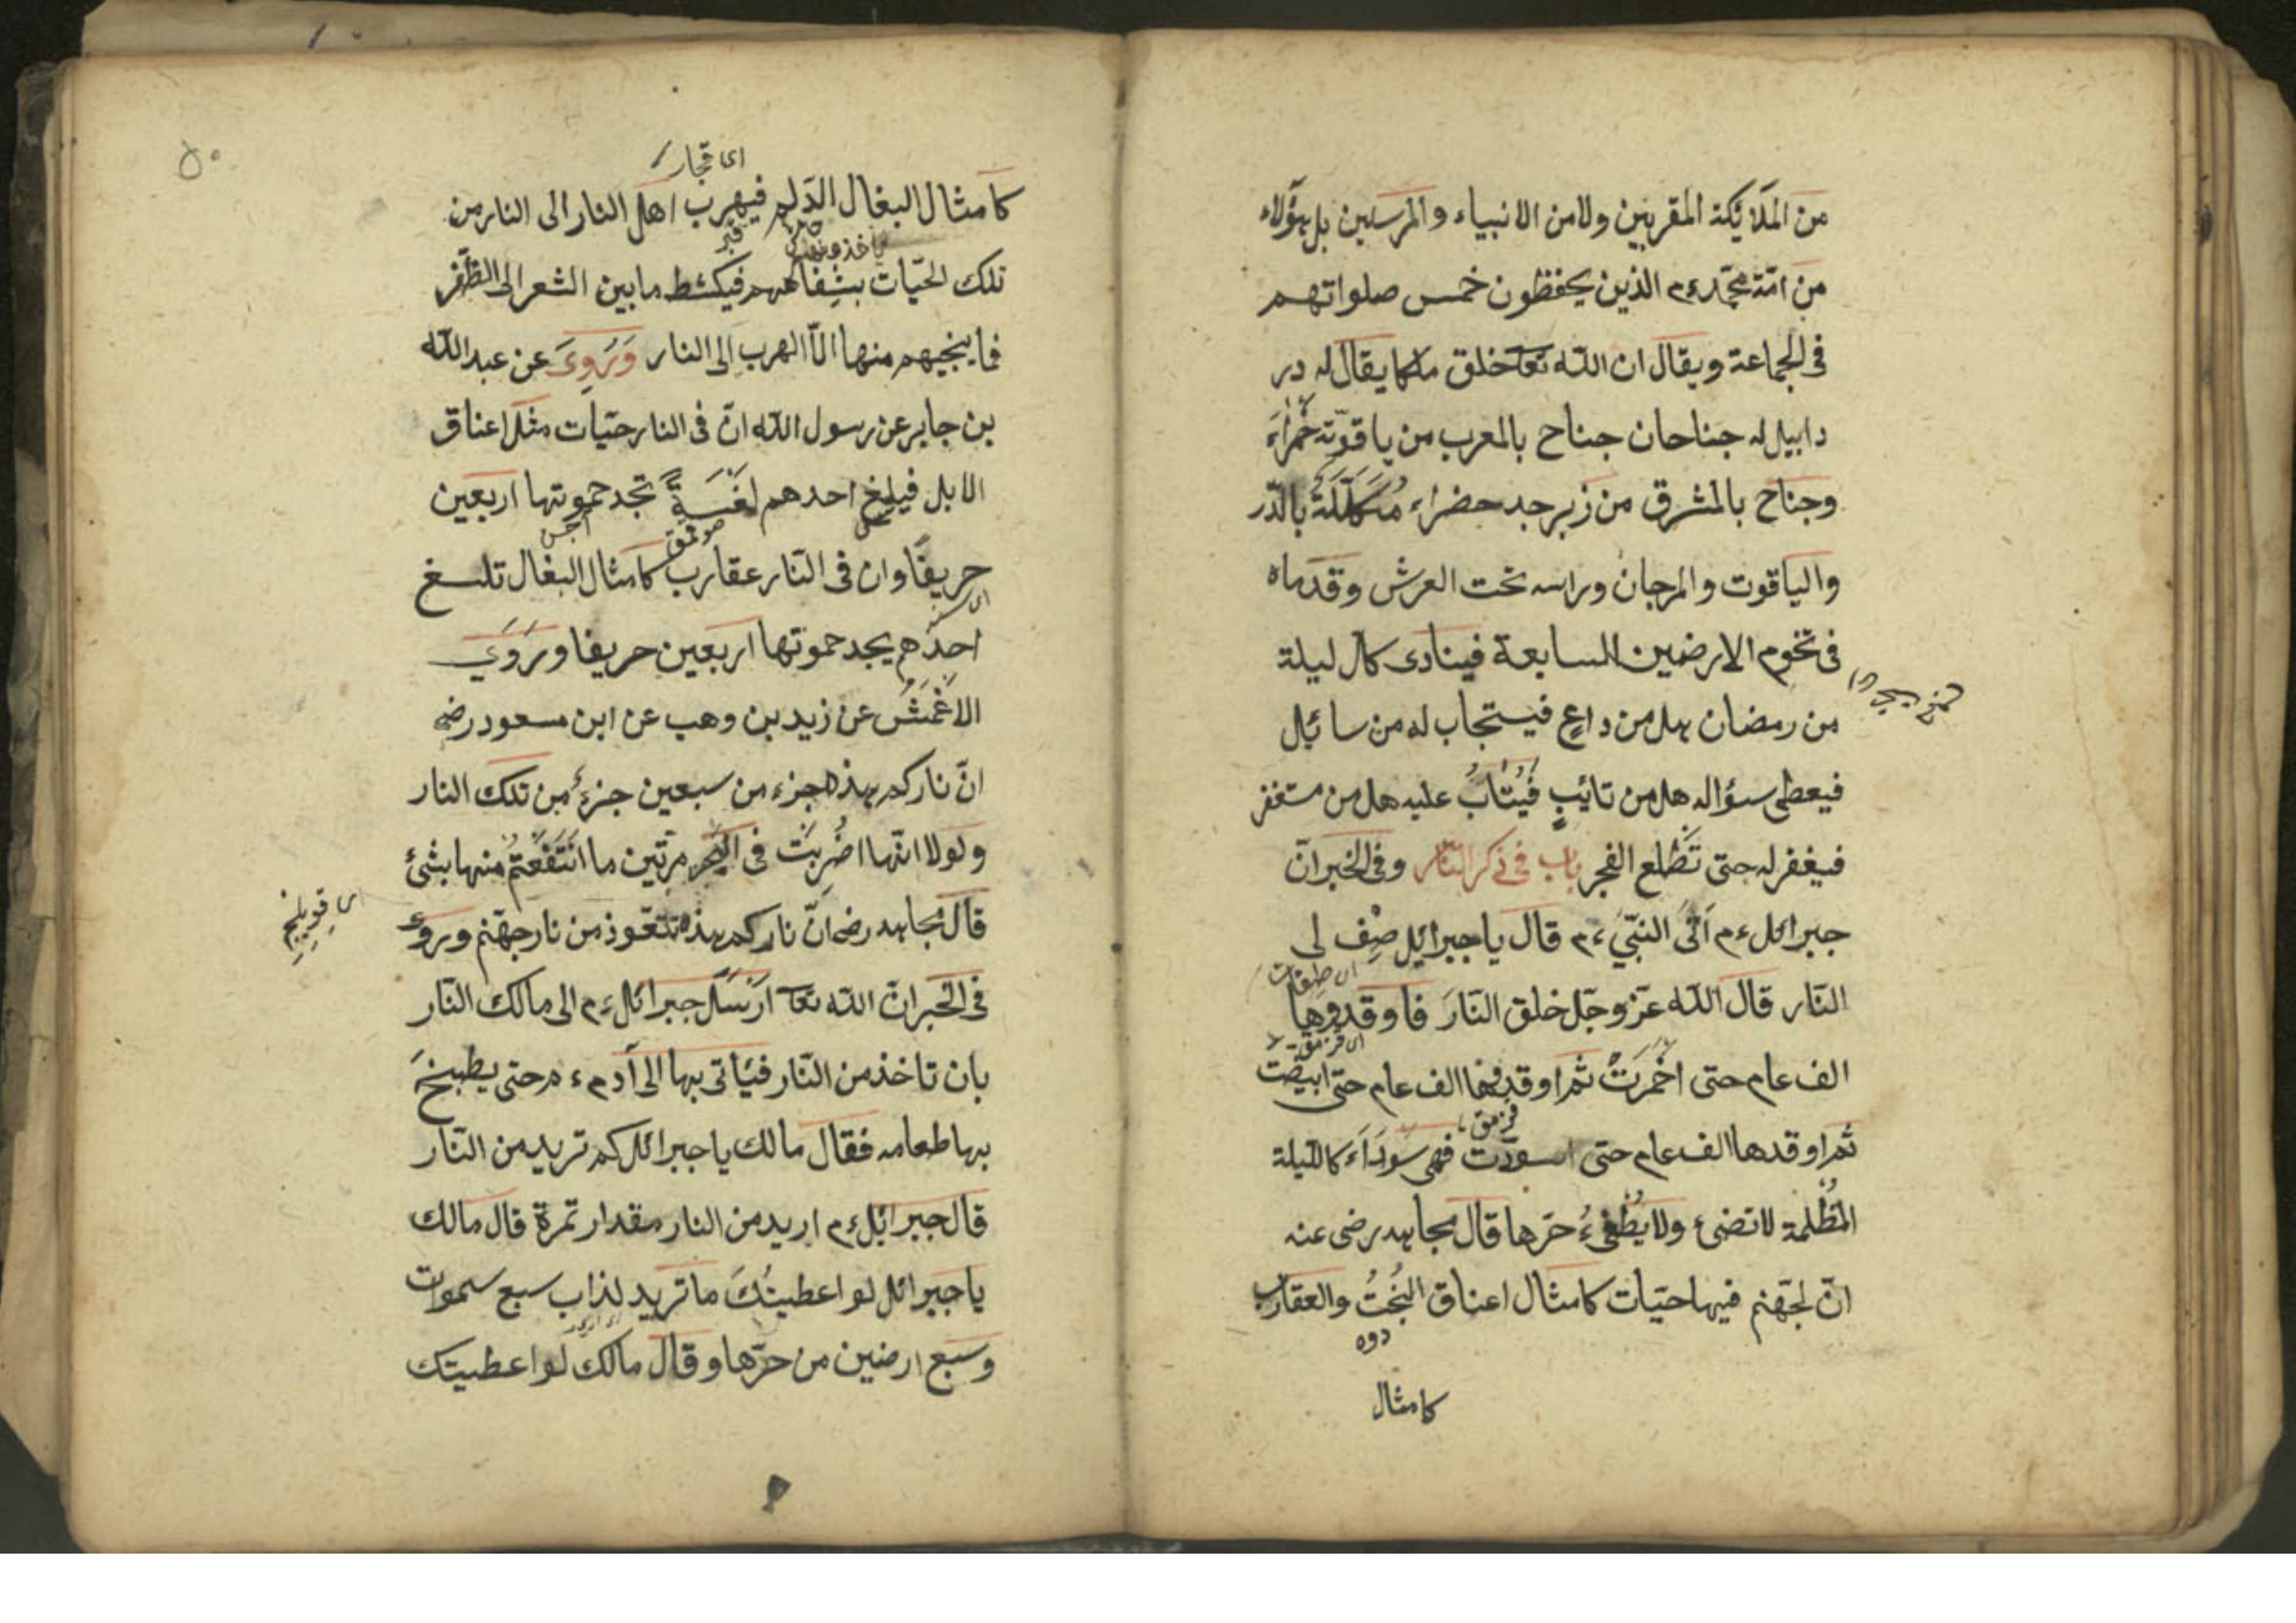 من الملائكة المقربين ولا من الانبياء والمرسلين بل هؤلاء
من امّة محمّد ءم الذين يحفظون خمس صلواتهم
فى الجماعة ويقال ان الله تعا خلق ملكا يقال له در
دابيل له جناحان جناح بالمغرب من ياقوتة حمراء
وجناح بالمشرق من زبرجد حضراء مُكَلَّلَةٌ بالدّر
والياقوت والمرجان وراسه تحت العرش وقدماه
فى تخوم الارضين السابعة فينادى كل ليلة
من رمضان هل من داعٍ فيستجاب له من سائل
فيعطى سؤاله هل من تائبٍ فَيُتَابُ عليه هل من مستغفر
فيغفر له حتى تَطْلع الفجر باب فى ذكر النّار وفى الخبر انّ
جبرائل ءم اَتَى النبىّ ءم قال يا جبرائل صِف لى
النّار قال الله عزّ وجلّ خلق النّارَ فاوقدوها
الف عام حتى احْمَرَتْ ثم اوقدها الف عام حتى ابيضّت
قزمق
ثم اوقدها الف عام حتى اسودّت فهى سَوْدَآءَ كالليلة
المُظْلمة لا تضىء ولا يُطْفىءُ حرّها قال مجاهد رضى عنه
انّ لجهّنم فيها حيّات كامثال اعناق البُخْتُ والعقارب
دوه
كامثال
٥٠
كامثال البغال الدّلم فيهرب اهل النار الى النار من
تلك الحيّات بشفاههم فيكشط ما بين الشعر الى الظّفر
فما ينجيهم منها الّا الهرب الى النار وَرَوِىَ عن عبد الله
بن جابر عن رسول الله انّ فى النار حيّات مثل اعناق
الابل فيلدغ احدهم لَسْعَةً تجد حموتها اربعين
حريفًا وان فى النّار عقارب كامثال البغال تلسغ
احدَهم يجد حموتها اربعين حريفا ورَوَىَ
الاَعْمَشُ عن زيد بن وهب عن ابن مسعود رضه
انّ ناركم هذه جزء من سبعين جزءٌ من تلك النار
ولولا انّها اضُرِبَت فى البحر مرّتين ما انْتَفَعْتُمُ منها بشئ
قال مجاهد رضه انّ ناركم هذه تتعّوذ من نار جهّنم وروى
فى الخبر انّ الله تعا اَرْسَلَ جبرائل ءم الى مالك النّار
بان تاخذ من النّار فيئاتى بها الى آدم ءم حتى يطبخَ
بها طعامه فقال مالك يا جبرائل كم تريد من النّار
قال جبرائل ءم اريد من النار مقدار تمرة قال مالك
يا جبرائل لو اعطيتُكَ ما تريد لذاب سبع سموات
وسبع ارضين من حرّها وقال مالك لو اعطيتك